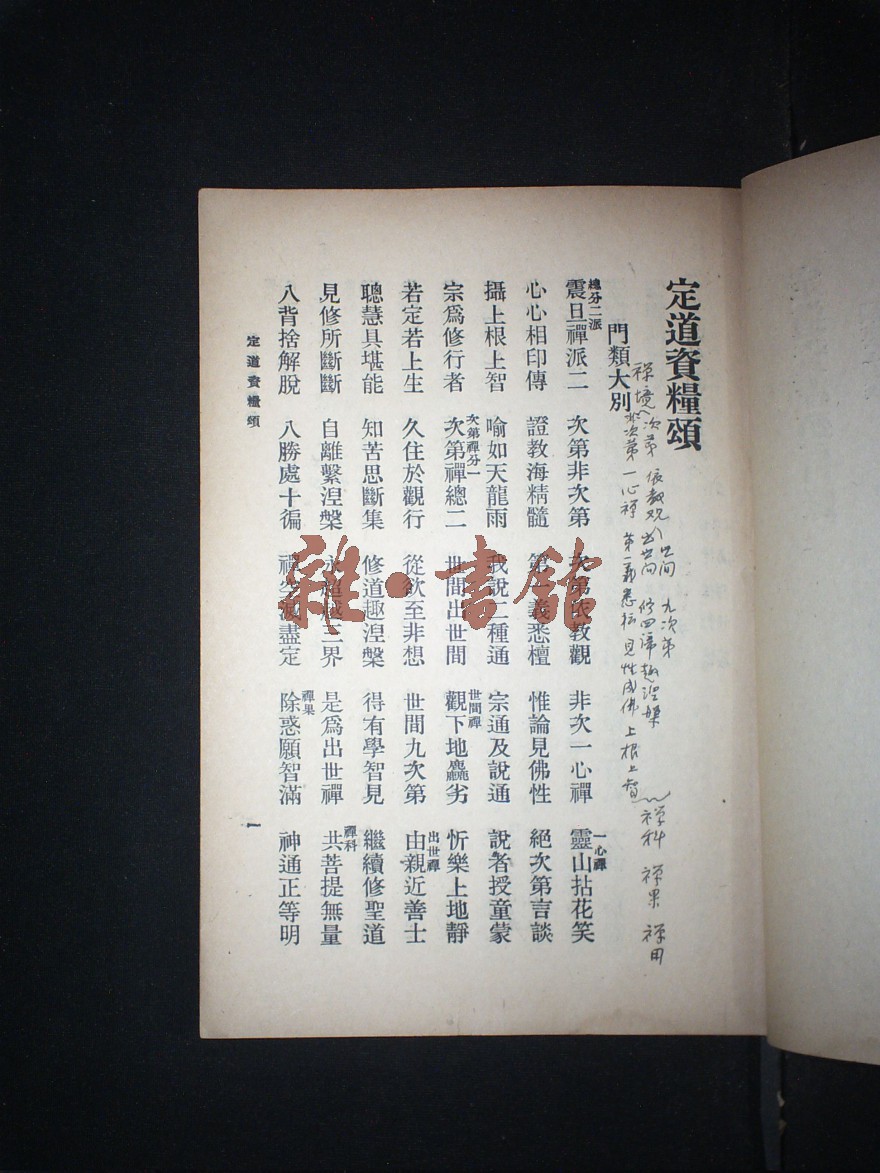 定道資糧頌
門類大別
禪境 次第 依教观 世间 九次第
出世间 修四諦趣涅槃
非次第 一心禪 第一義悉檀 見性成佛 上根上智
禅科 禅果 禅用
總分二派
震旦禪派二 次第非次第 次第依教觀 非次一心禪 一心禪 靈山拈花笑
心心相印傳 證教海精髓 第一義悉檀 惟論見佛性 絕次第言談
攝上根上智 喻如天龍雨 我說二種通 宗通及說通 說者授童蒙
宗爲修行者 次第禪分一 次第禪總二 世間出世間 世間禪 觀下地麤劣 忻樂上地靜
若定若上生 久住於觀行 從欲至非想 世間九次第 出世禪 由親近善士
聰慧具堪能 知苦思斷集 修道趣涅槃 得有學智見 繼續修聖道
見修所斷斷 自離繫涅槃 永超越三界 是爲出世禪 禪科 共菩提無量
八背捨解脫 八勝處十徧 禪空滅盡定 禪果 除惑願智滿 神通正等明
定道資糧頌
一
雜·書館